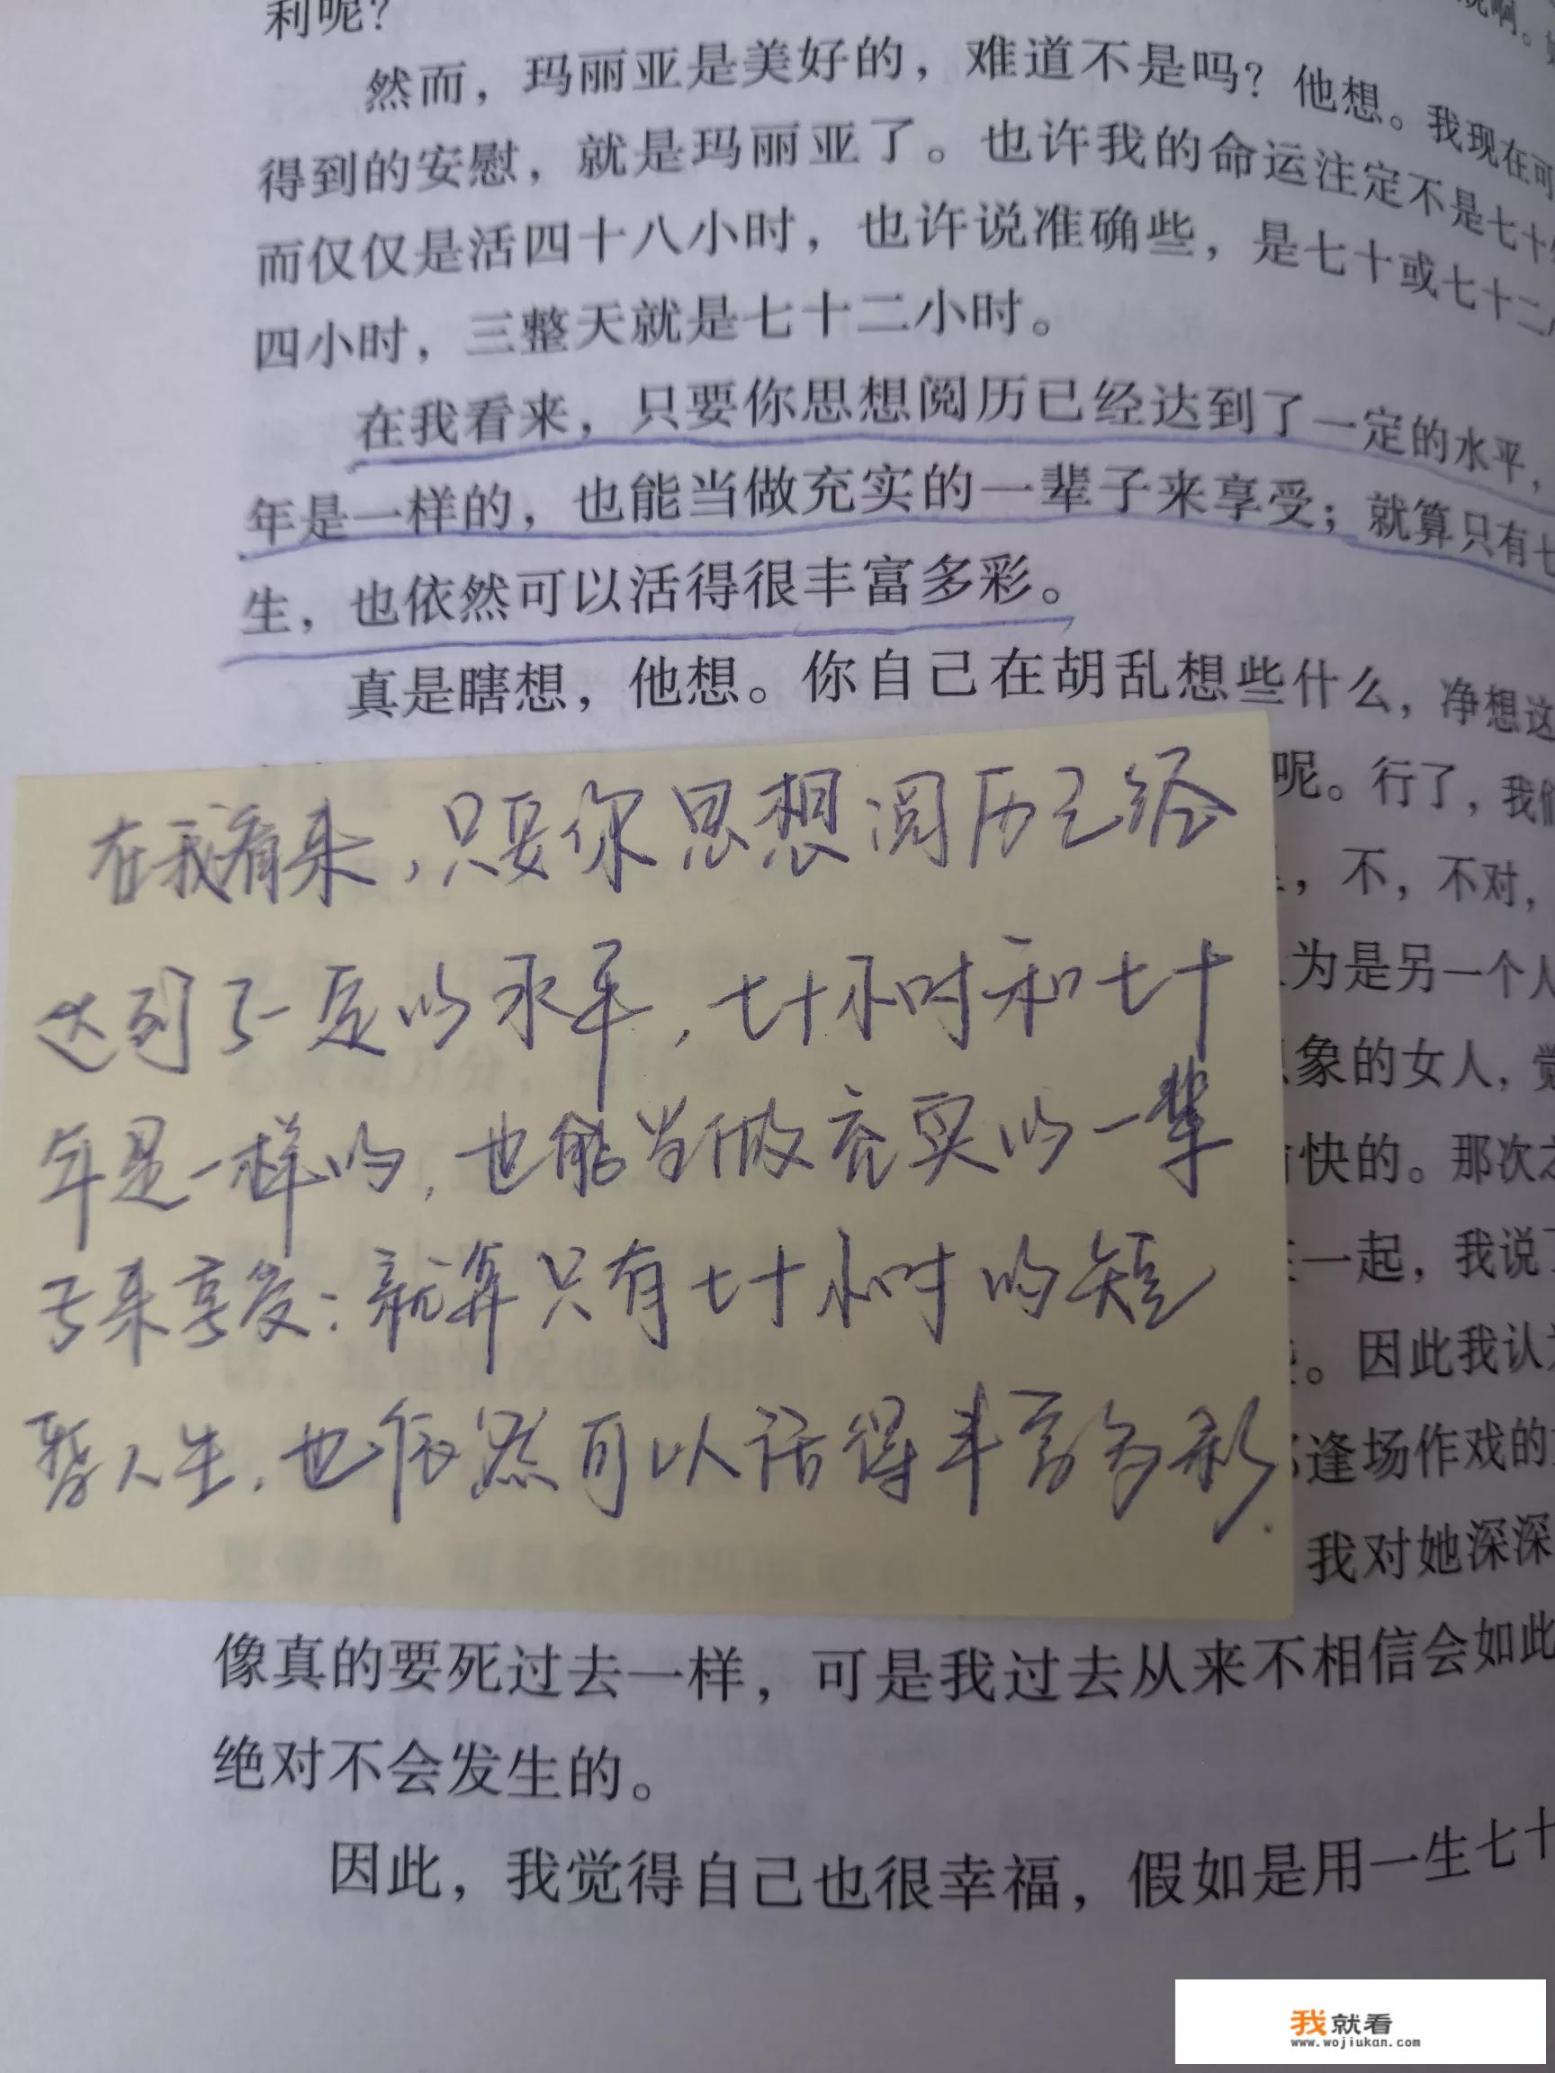 利呢？
然而，玛丽亚是美好的，难道不是吗？他想。我现在可
得到的安慰，就是玛丽亚了。也许我的命运注定不是七十
而仅仅是活四十八小时，也许说准确些，是七十或七十二
四小时，三整天就是七十二小时。
在我看来，只要你思想阅历已经达到了一定的水平，
年是一样的，也能当做充实的一辈子来享受；就算只有七
生，也依然可以活得很丰富多彩。
真是瞎想，他想。你自己在胡乱想些什么，净想这
呢。行了，我们
，不，不对，
为是另一个人
象的女人，觉
快的。那次
一起，我说了
。因此我认为
逢场作戏的
我对她深深
在我看来，只要你思想阅历已经
达到了一定的水平，七十小时和七十
年是一样的，也能当做充实的一辈
子来享受；就算只有七十小时的短
暂人生，也依然可以活得丰富多彩.
像真的要死过去一样，可是我过去从来不相信会如此
绝对不会发生的。
因此，我觉得自己也很幸福，假如是用一生七十
我就看
www.wojiukan.com